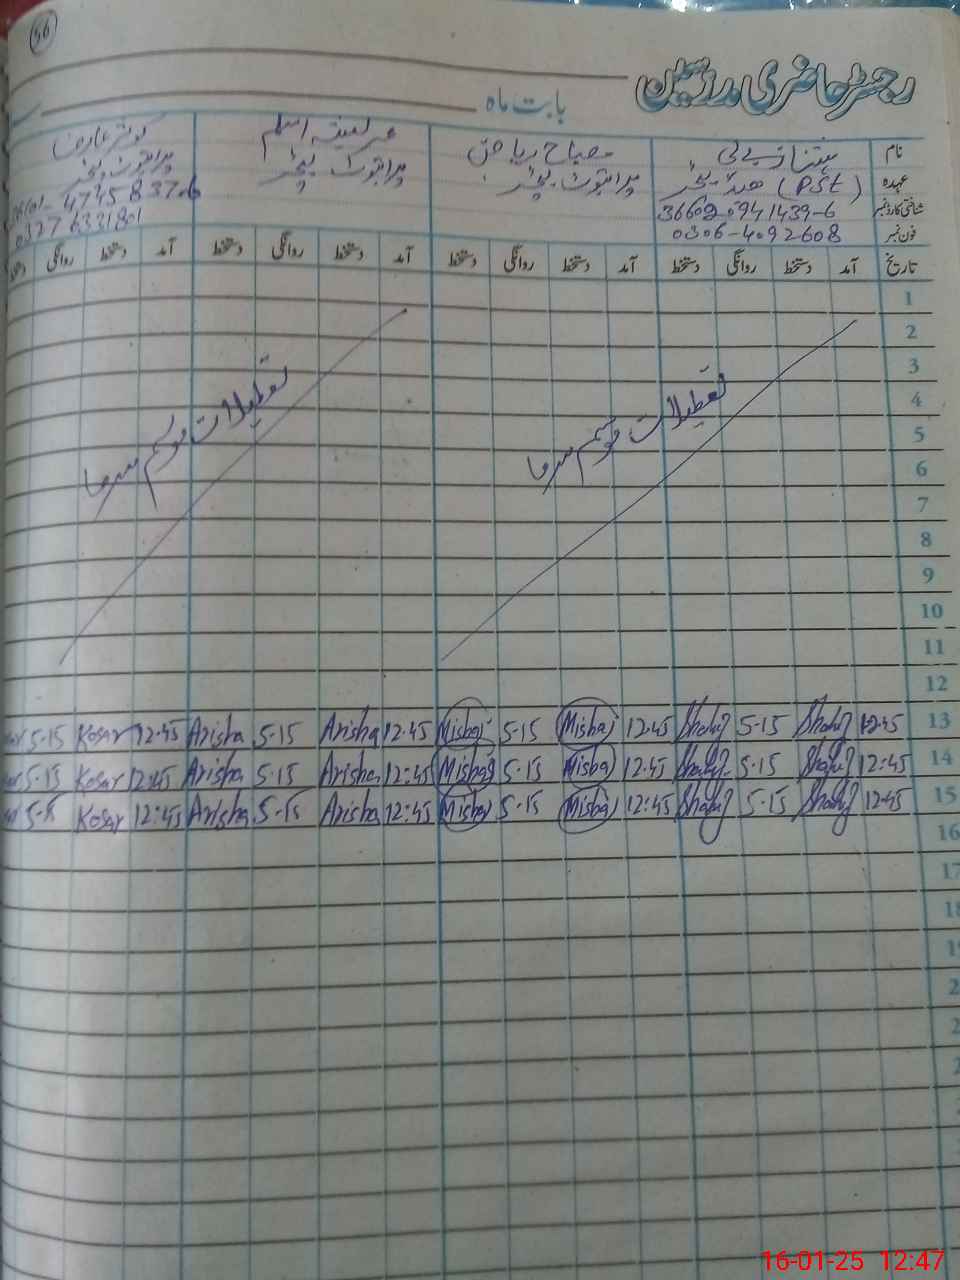 56
رجسٹر حاضری مدرسین
بابت ماہ
نام شہناز بی بی مصباح ریاض عریشہ اسلم کوثر عارف
عہدہ ہیڈ ٹیچر (PSt) پرائیوٹ ٹیچر پرائیوٹ ٹیچر پرائیوٹ ٹیچر
شناختی کارڈ نمبر 36602-0941439-6 4745837-6
فون نمبر 0306-4092608 0327 6331801
تاریخ آمد دستخط روانگی دستخط آمد دستخط روانگی دستخط آمد دستخط روانگی دستخط آمد دستخط روانگی دستخط
1
2
3
4
5
6
7
8
9
10
11
12
تعطیلات موسم سرما
تعطیلات موسم سرما
5-15 Kosar 12-45 Arisha 5-15 Arisha 12-45 Misbaj 5-15 Misbaj 12-45 Shahnz 5-15 Shahnz 12-45 13
5-15 Kosar 12:45 Arisha 5-15 Arisha 12:45 Misbaj 5-15 Misbaj 12:45 Shahnz 5-15 Shahnz 12:45 14
5-15 Kosar 12:45 Arisha 5-15 Arisha 12:45 Misbaj 5-15 Misbaj 12:45 Shahnz 5-15 Shahnz 12:45 15
16
17
18
16-01-25 12:47